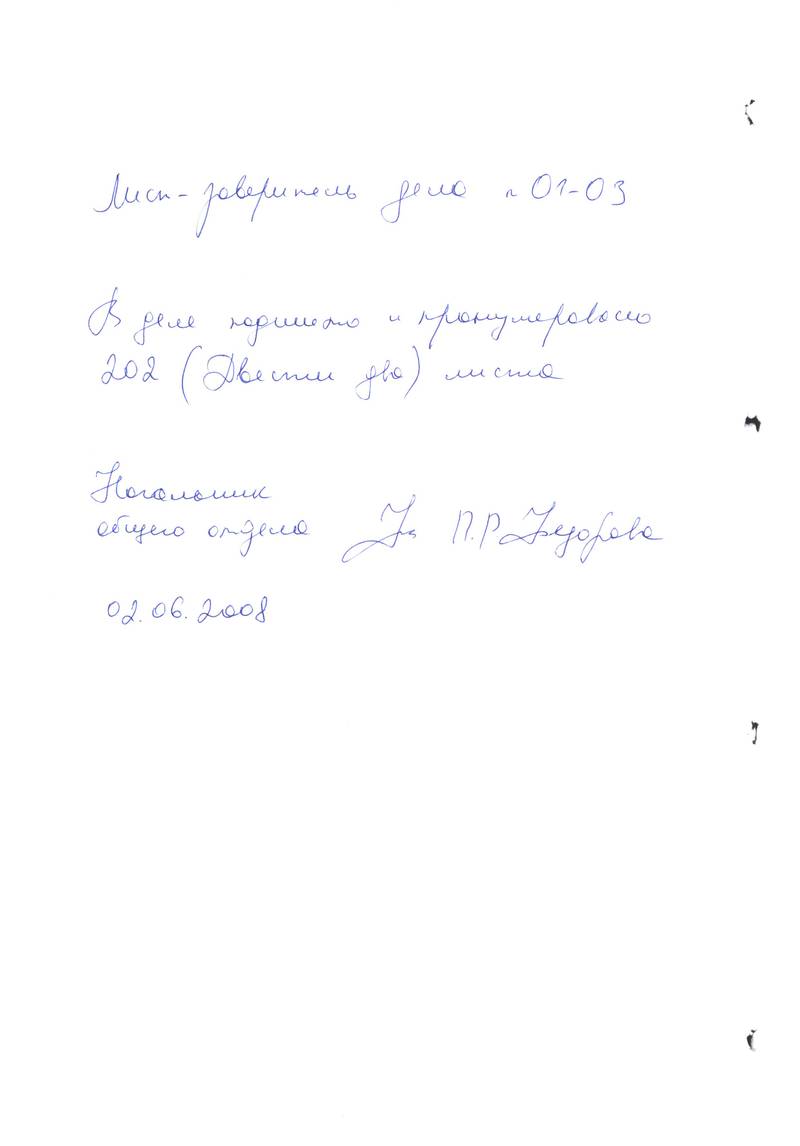 Лист-заверитель дела № 01-03
В деле подшито и пронумеровано
202 (Двести два) листа
Начальник
общего отдела П.Р. Федорова
02.06.2008